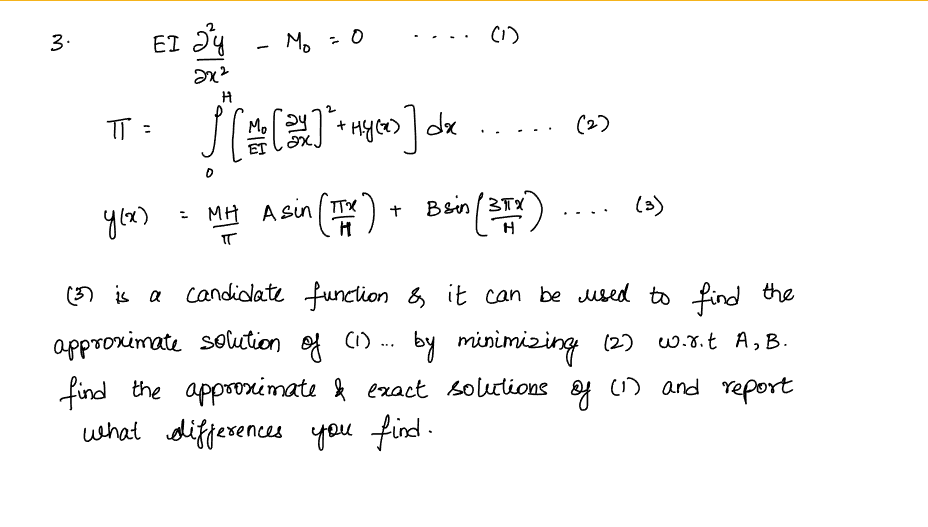 3. EI ∂²y/∂x² - M₀ = 0 .... (1)
π = ∫₀ᴴ [ M₀/EI [∂y/∂x]² + Hy(x) ] dx ..... (2)
y(x) = MH/π A sin(πx/H) + B sin(3πx/H) .... (3)
(3) is a candidate function & it can be used to find the
approximate solution of (1) ... by minimizing (2) w.r.t A, B.
find the approximate & exact solutions of (1) and report
what differences you find.